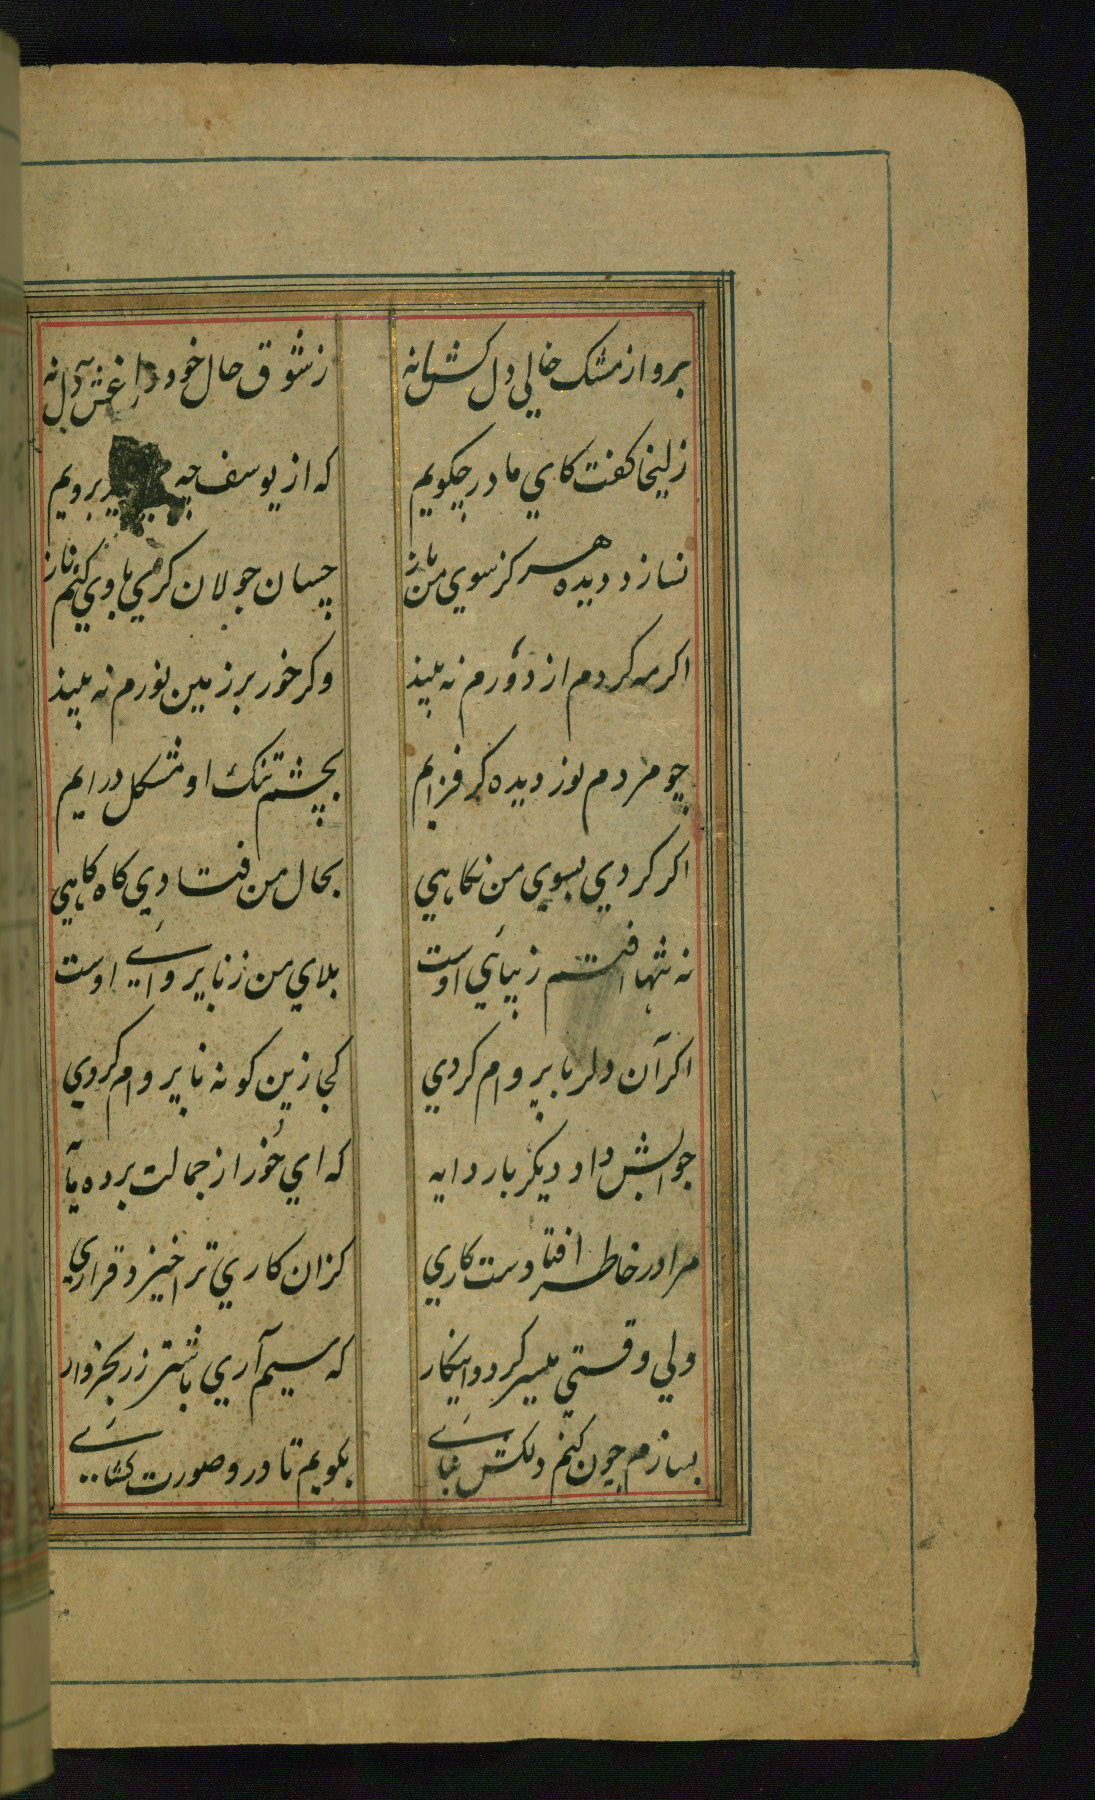 برو از مشک خالی دل کش نه ز شوق حال خود داغش بدل نه
زلیخا کفت کای مادر چکویم که از یوسف چه برویم
نسازد دیده هرکز سوی من باز چسان جولان کری با وی کنم ناز
اکر مه کردم از دورم نه بیند وکر خور بر زمین نورم نه بیند
چو مردم نور دیده کر فزایم بچشم تنک او مشکل درایم
اکر کردی بسوی من نکاهی بحال من فتادی کاه کاهی
نه تنها افتم زیبائی اوست بلای من ز ناپروائے اوست
اکر آن دلربا پروام کردی کجا زین کونه ناپروام کردی
جوابش داد دیکر بار دایه که ای خور از جمالت برده مآیه
مرا در خاطر افتادست کاری کزان کاری ترا خیزد قراری
ولی وقتی میسر کردد اینکار که سیم آری باشتر زر بخروار
بسازم چون کنم دلکش بنائے بکویم تا درو صورت کشائے